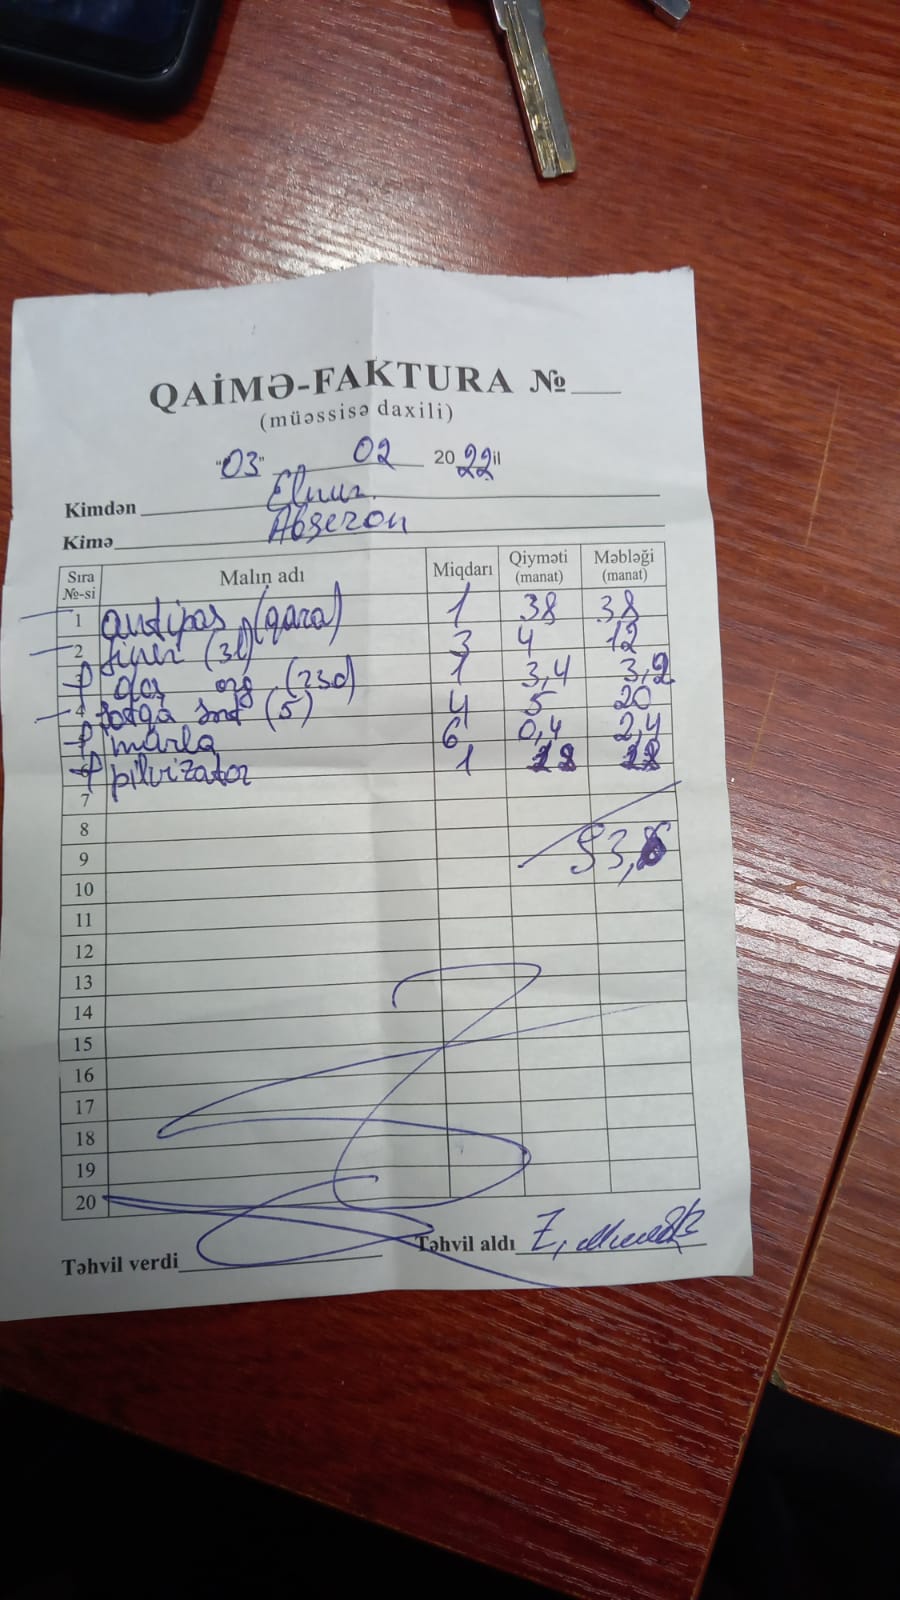 QAİMƏ-FAKTURA №
(müəssisə daxili)
"03" 02 2022 il
Kimdən Elnur.
Kimə Abşeron
Sıra №-si Malın adı Miqdarı Qiyməti (manat) Məbləği (manat)
1 (qara) 1 38 38
2 (3l) 3 4 12
3 1 3,4 3,2
4 (5) 4 5 20
marla 6 0,4 2,4
pilvizator 1 18 18
7
8
9 93,6
10
11
12
13
14
15
16
17
18
19
20
Təhvil verdi Təhvil aldı